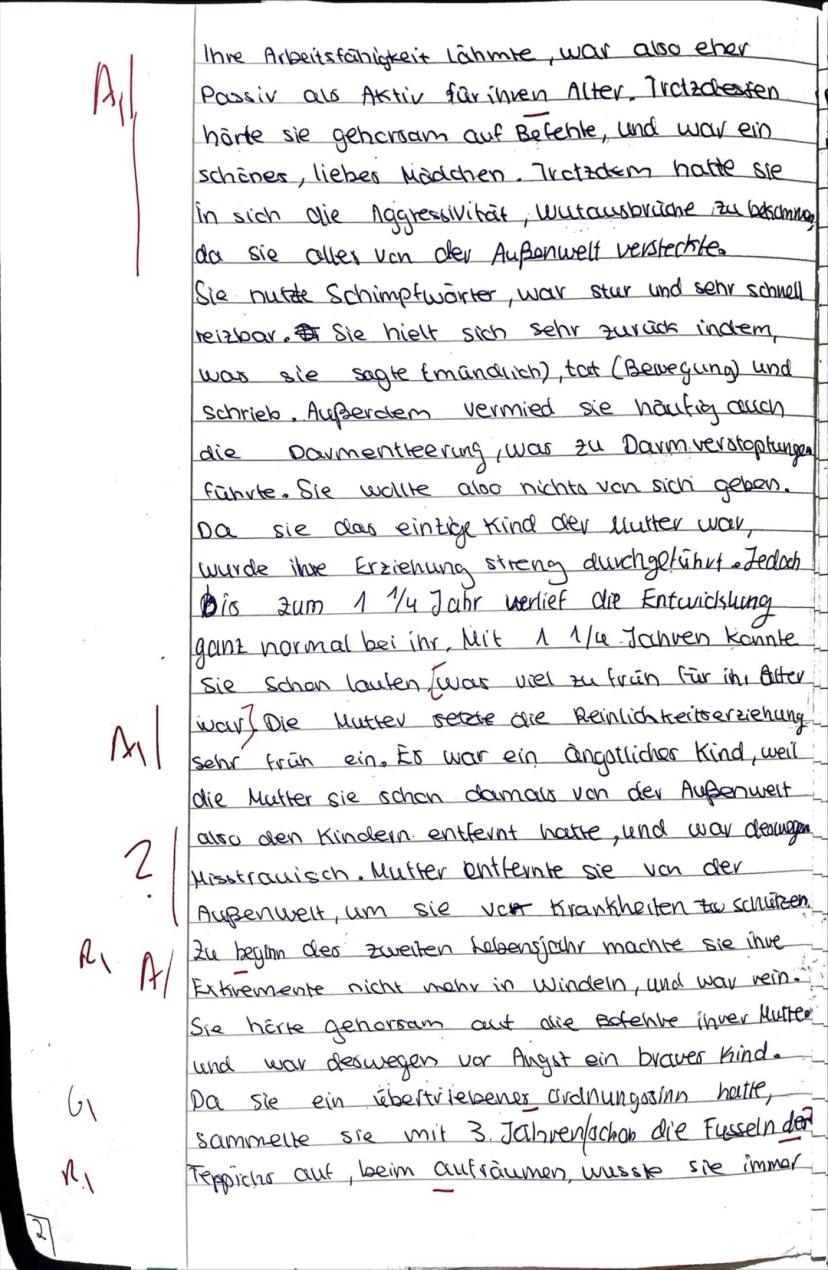 Ihre Arbeitsfähigkeit lähmte, war also eher
A,
Passiv als Aktiv für ihren Alter. Trotzdessen
hörte sie gehorsam auf Befehle, und war ein
schönes, liebes Mädchen. Trotzdem hatte sie
in sich die Aggressivität, Wutausbrüche zu
da sie alles von der Außenwelt versteckte.
Sie nutzte Schimpfwörter, war stur und sehr schnell
reizbar. Sie hielt sich sehr zurück indem,
was sie sagte (mündlich), tat (Bewegung) und
schrieb. Außerdem vermied sie häufig auch
die Darmentleerung, was zu Darmverstopfungen
führte. Sie wollte also nichts von sich geben.
Da sie das einzige Kind der Mutter war,
wurde ihre Erziehung streng durchgeführt. Jedoch
bis zum 1 1/4 Jahr verlief die Entwicklung
ganz normal bei ihr. Mit 1 1/4 Jahren konnte
sie schon laufen, [was viel zu früh für ihr Alter
A, war] Die Mutter setzte die Reinlichkeitserziehung
sehr früh ein. Es war ein ängstliches Kind, weil
die Mutter sie schon damals von der Außenwelt
also den Kindern entfernt hatte, und war deswegen
? Misstrauisch. Mutter entfernte sie von der
Außenwelt, um sie vor Krankheiten zu schützen.
R, Zu beginn des zweiten Lebensjahr machte sie ihre
A Extremente nicht mehr in Windeln, und war rein.
Sie hörte gehorsam auf die Befehle ihrer Mutter
und war deswegen vor Angst ein braves Kind.
G, Da sie ein übertriebener Ordnungssinn hatte,
sammelte sie mit 3. Jahren schon die Fusseln der
R, Teppichs auf, beim aufräumen, wusste sie immer
2